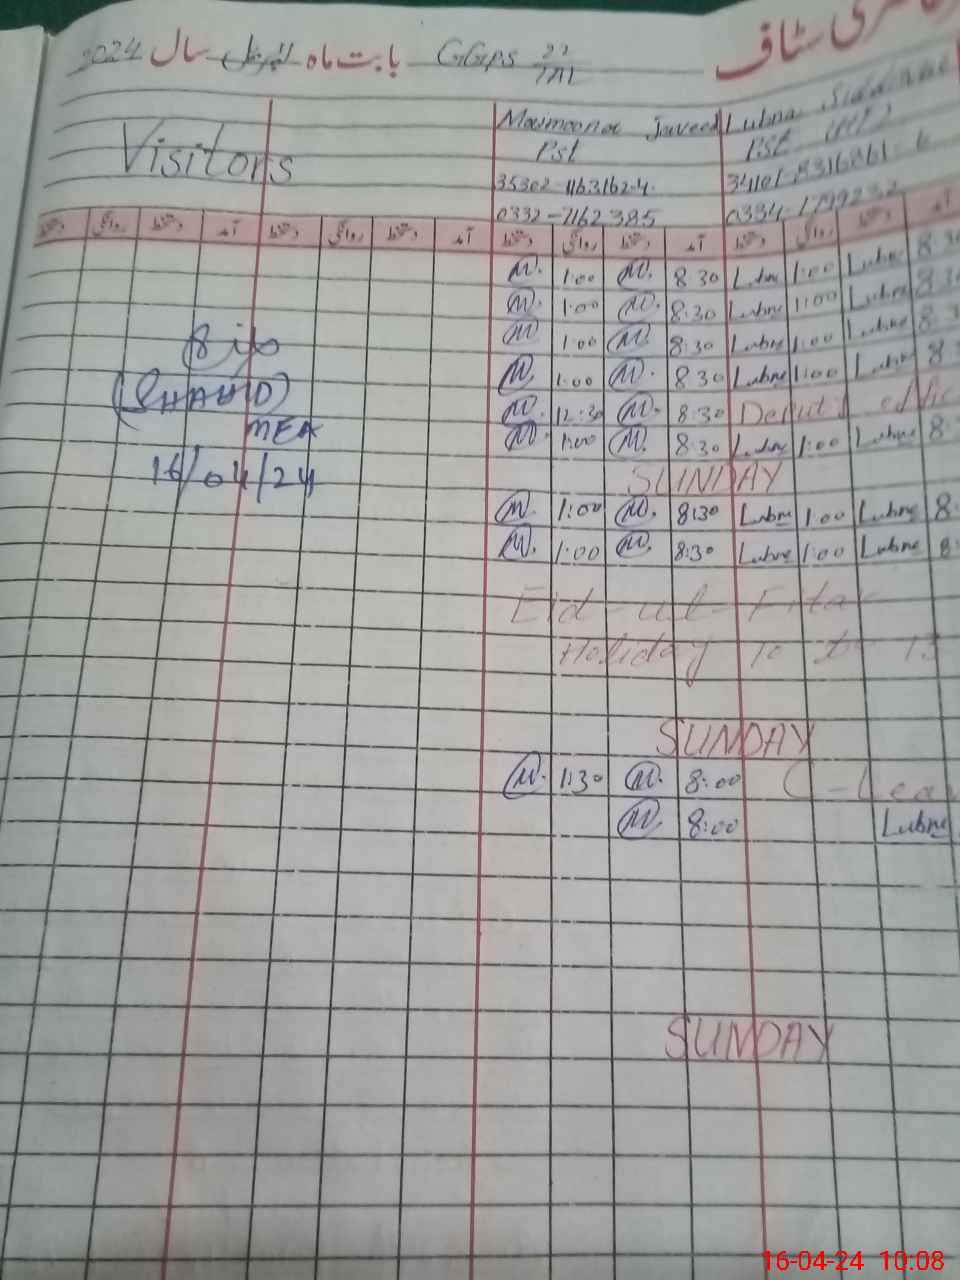 حاضری سٹاف
بابت ماہ اپریل سال 2024
GGPS 22/TAI
Visitors
Maimoona Javeed
PST
35302-1163162-4
0332-7162385
Lubna Siddique
PST (HT)
34101-8316861-6
0334-1799232
دستخط روانگی دستخط آمد دستخط روانگی دستخط آمد دستخط روانگی دستخط آمد دستخط روانگی دستخط آمد
M. 1:00 M. 8:30 Lubna 1:00 Lubna 8:30
M. 1:00 M. 8:30 Lubna 1:00 Lubna 8:30
M. 1:00 M. 8:30 Lubna 1:00 Lubna 8:3
M. 1:00 M. 8:30 Lubna 1:00 Lubna 8:
M. 12:30 M. 8:30
M. 1:00 M. 8:30 Lubna 1:00 Lubna 8:
SUNDAY
M. 1:00 M. 8:30 Lubna 1:00 Lubna 8:
M. 1:00 M. 8:30 Lubna 1:00 Lubna 8:
Eid-ul-Fitar
Holiday 10 to 13
SUNDAY
M. 1:30 M. 8:00 C-Leav
M. 8:00 Lubna
SUNDAY
(SHAHID)
MEA
16/04/24
16-04-24 10:08